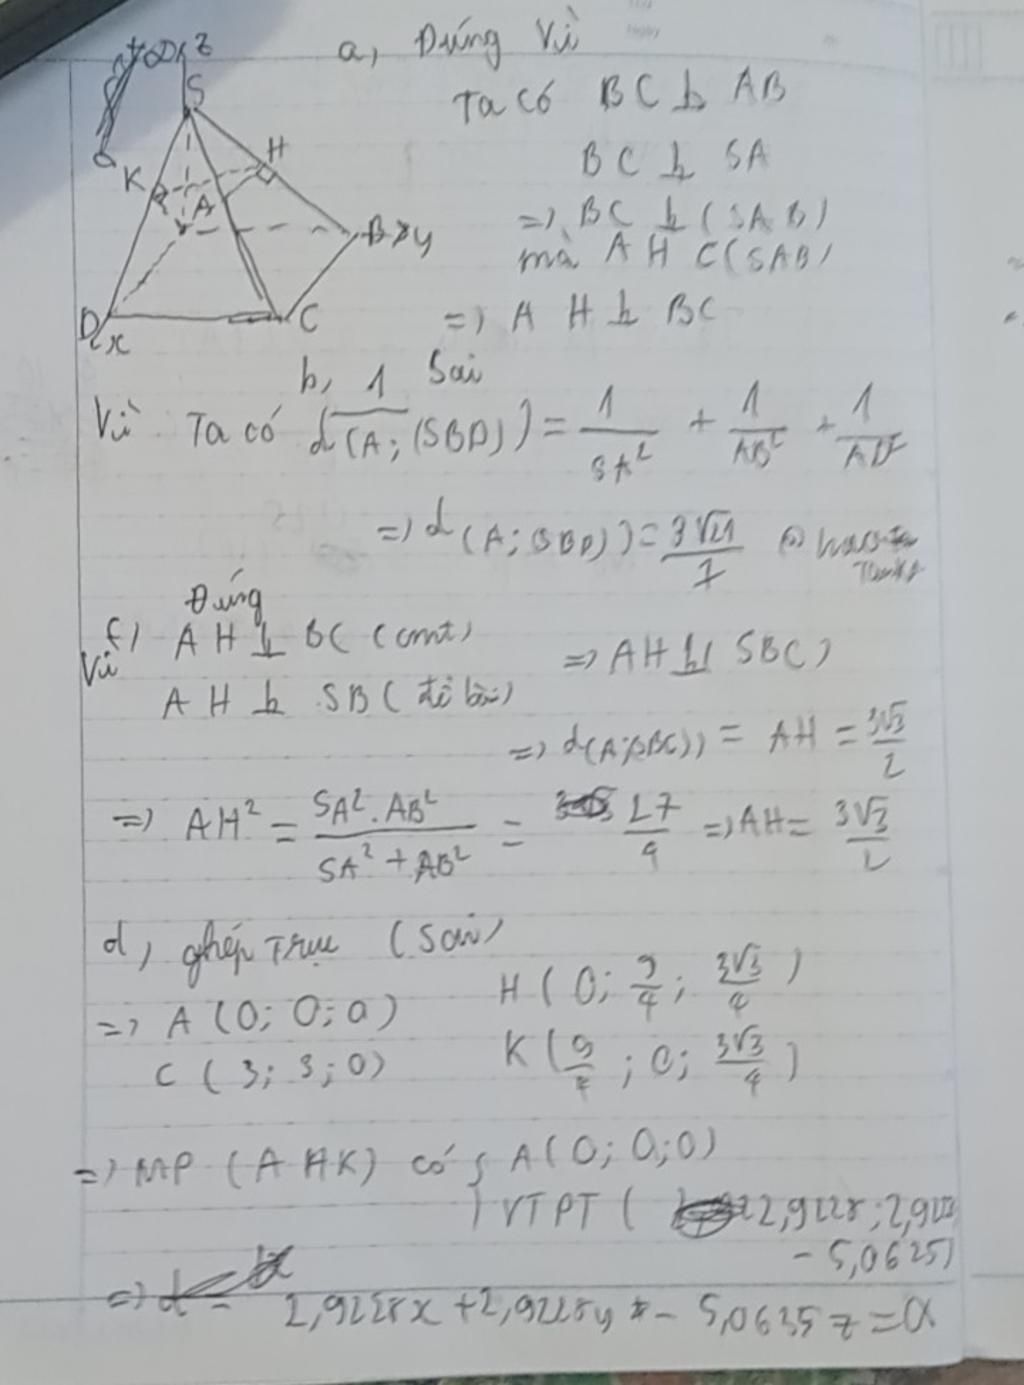 a, Đúng Vì
z
S
Ta có BC ⊥ AB
H
K
A
BC ⊥ SA
=> BC ⊥ (SAB)
B y
mà AH ⊂ (SAB)
D
x
C
=> AH ⊥ BC
b, Sai
Vì Ta có 1/d(A; (SBD)) = 1/SA² + 1/AB² + 1/AD²
=> d(A; SBD)) = 3√21/7
Đúng
c) AH ⊥ BC (cmt)
Vì
=> AH ⊥ (SBC)
AH ⊥ SB (đề bài)
=> d(A;SBC)) = AH = 3√3/2
=> AH² = SA².AB²/SA² + AB² = 27/4 => AH = 3√3/2
d, ghép Trục (Sai)
=> A (0; 0; 0)
H (0; 9/4; 3√3/4)
C (3; 3; 0)
K (9/4; 0; 3√3/4)
=> MP (AHK) có { A (0; 0; 0)
VTPT ( 2,9228; 2,9228
- 5,0625)
=> 2,9228x + 2,9228y - 5,0635z = 0